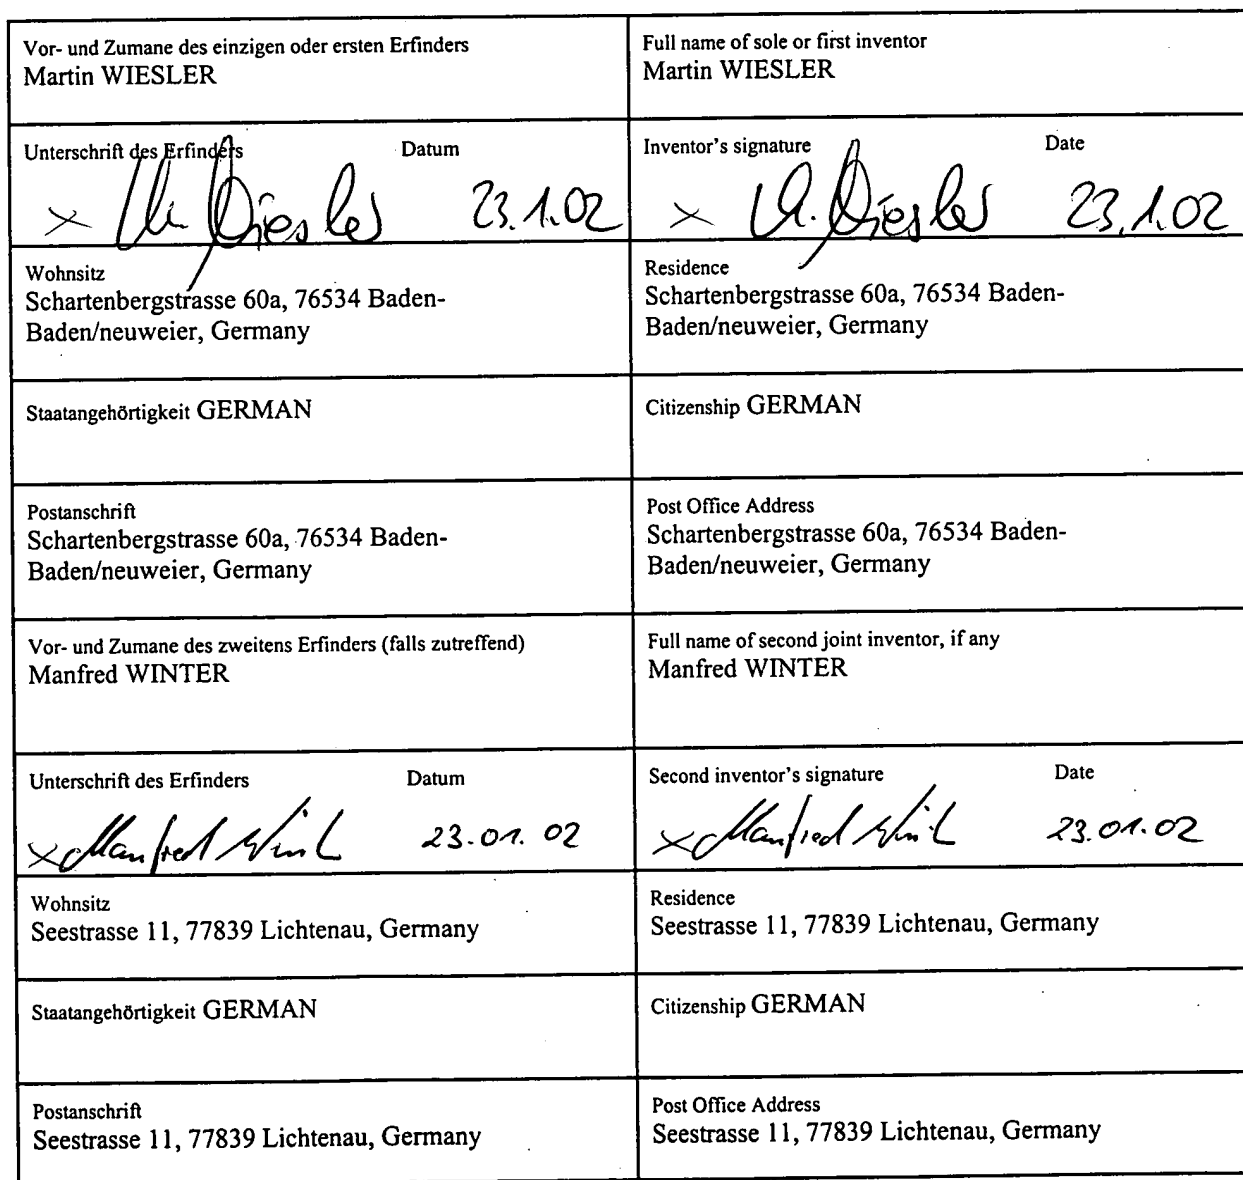 Vor- und Zumane des einzigen oder ersten Erfinders
Martin WIESLER
Full name of sole or first inventor
Martin WIESLER
Unterschrift des Erfinders Datum
× M. Wiesler 23.1.02
Inventor's signature Date
× M. Wiesler 23.1.02
Wohnsitz
Schartenbergstrasse 60a, 76534 Baden-
Baden/neuweier, Germany
Residence
Schartenbergstrasse 60a, 76534 Baden-
Baden/neuweier, Germany
Staatangehörtigkeit GERMAN
Citizenship GERMAN
Postanschrift
Schartenbergstrasse 60a, 76534 Baden-
Baden/neuweier, Germany
Post Office Address
Schartenbergstrasse 60a, 76534 Baden-
Baden/neuweier, Germany
Vor- und Zumane des zweitens Erfinders (falls zutreffend)
Manfred WINTER
Full name of second joint inventor, if any
Manfred WINTER
Unterschrift des Erfinders Datum
× Manfred Wint 23.01.02
Second inventor's signature Date
× Manfred Wint 23.01.02
Wohnsitz
Seestrasse 11, 77839 Lichtenau, Germany
Residence
Seestrasse 11, 77839 Lichtenau, Germany
Staatangehörtigkeit GERMAN
Citizenship GERMAN
Postanschrift
Seestrasse 11, 77839 Lichtenau, Germany
Post Office Address
Seestrasse 11, 77839 Lichtenau, Germany